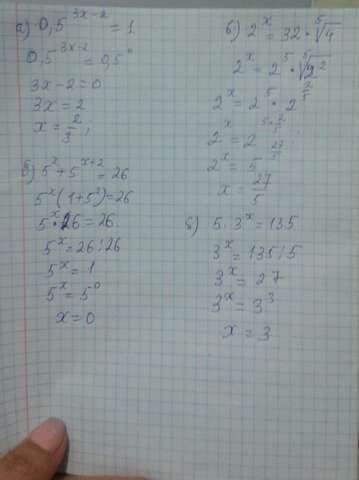 а) 0,5^{3x-2} = 1
0,5^{3x-2} = 0,5°
3x-2=0
3x=2
x = 2/3,
б) 5^x+5^{x+2}=26
5^x(1+5²)=26
5^x·26=26
5^x=26:26
5^x=1
5^x=5^0
x=0
б) 2^x = 32·⁵√4
2^x = 2^5·⁵√2²
2^x = 2^5·2^{2/5}
2^x = 2^{5·2/5}
2^x = 5^{27/5}
x = 27/5
б) 5·3^x=135
3^x=135/5
3^x=27
3^x=3^3
x=3